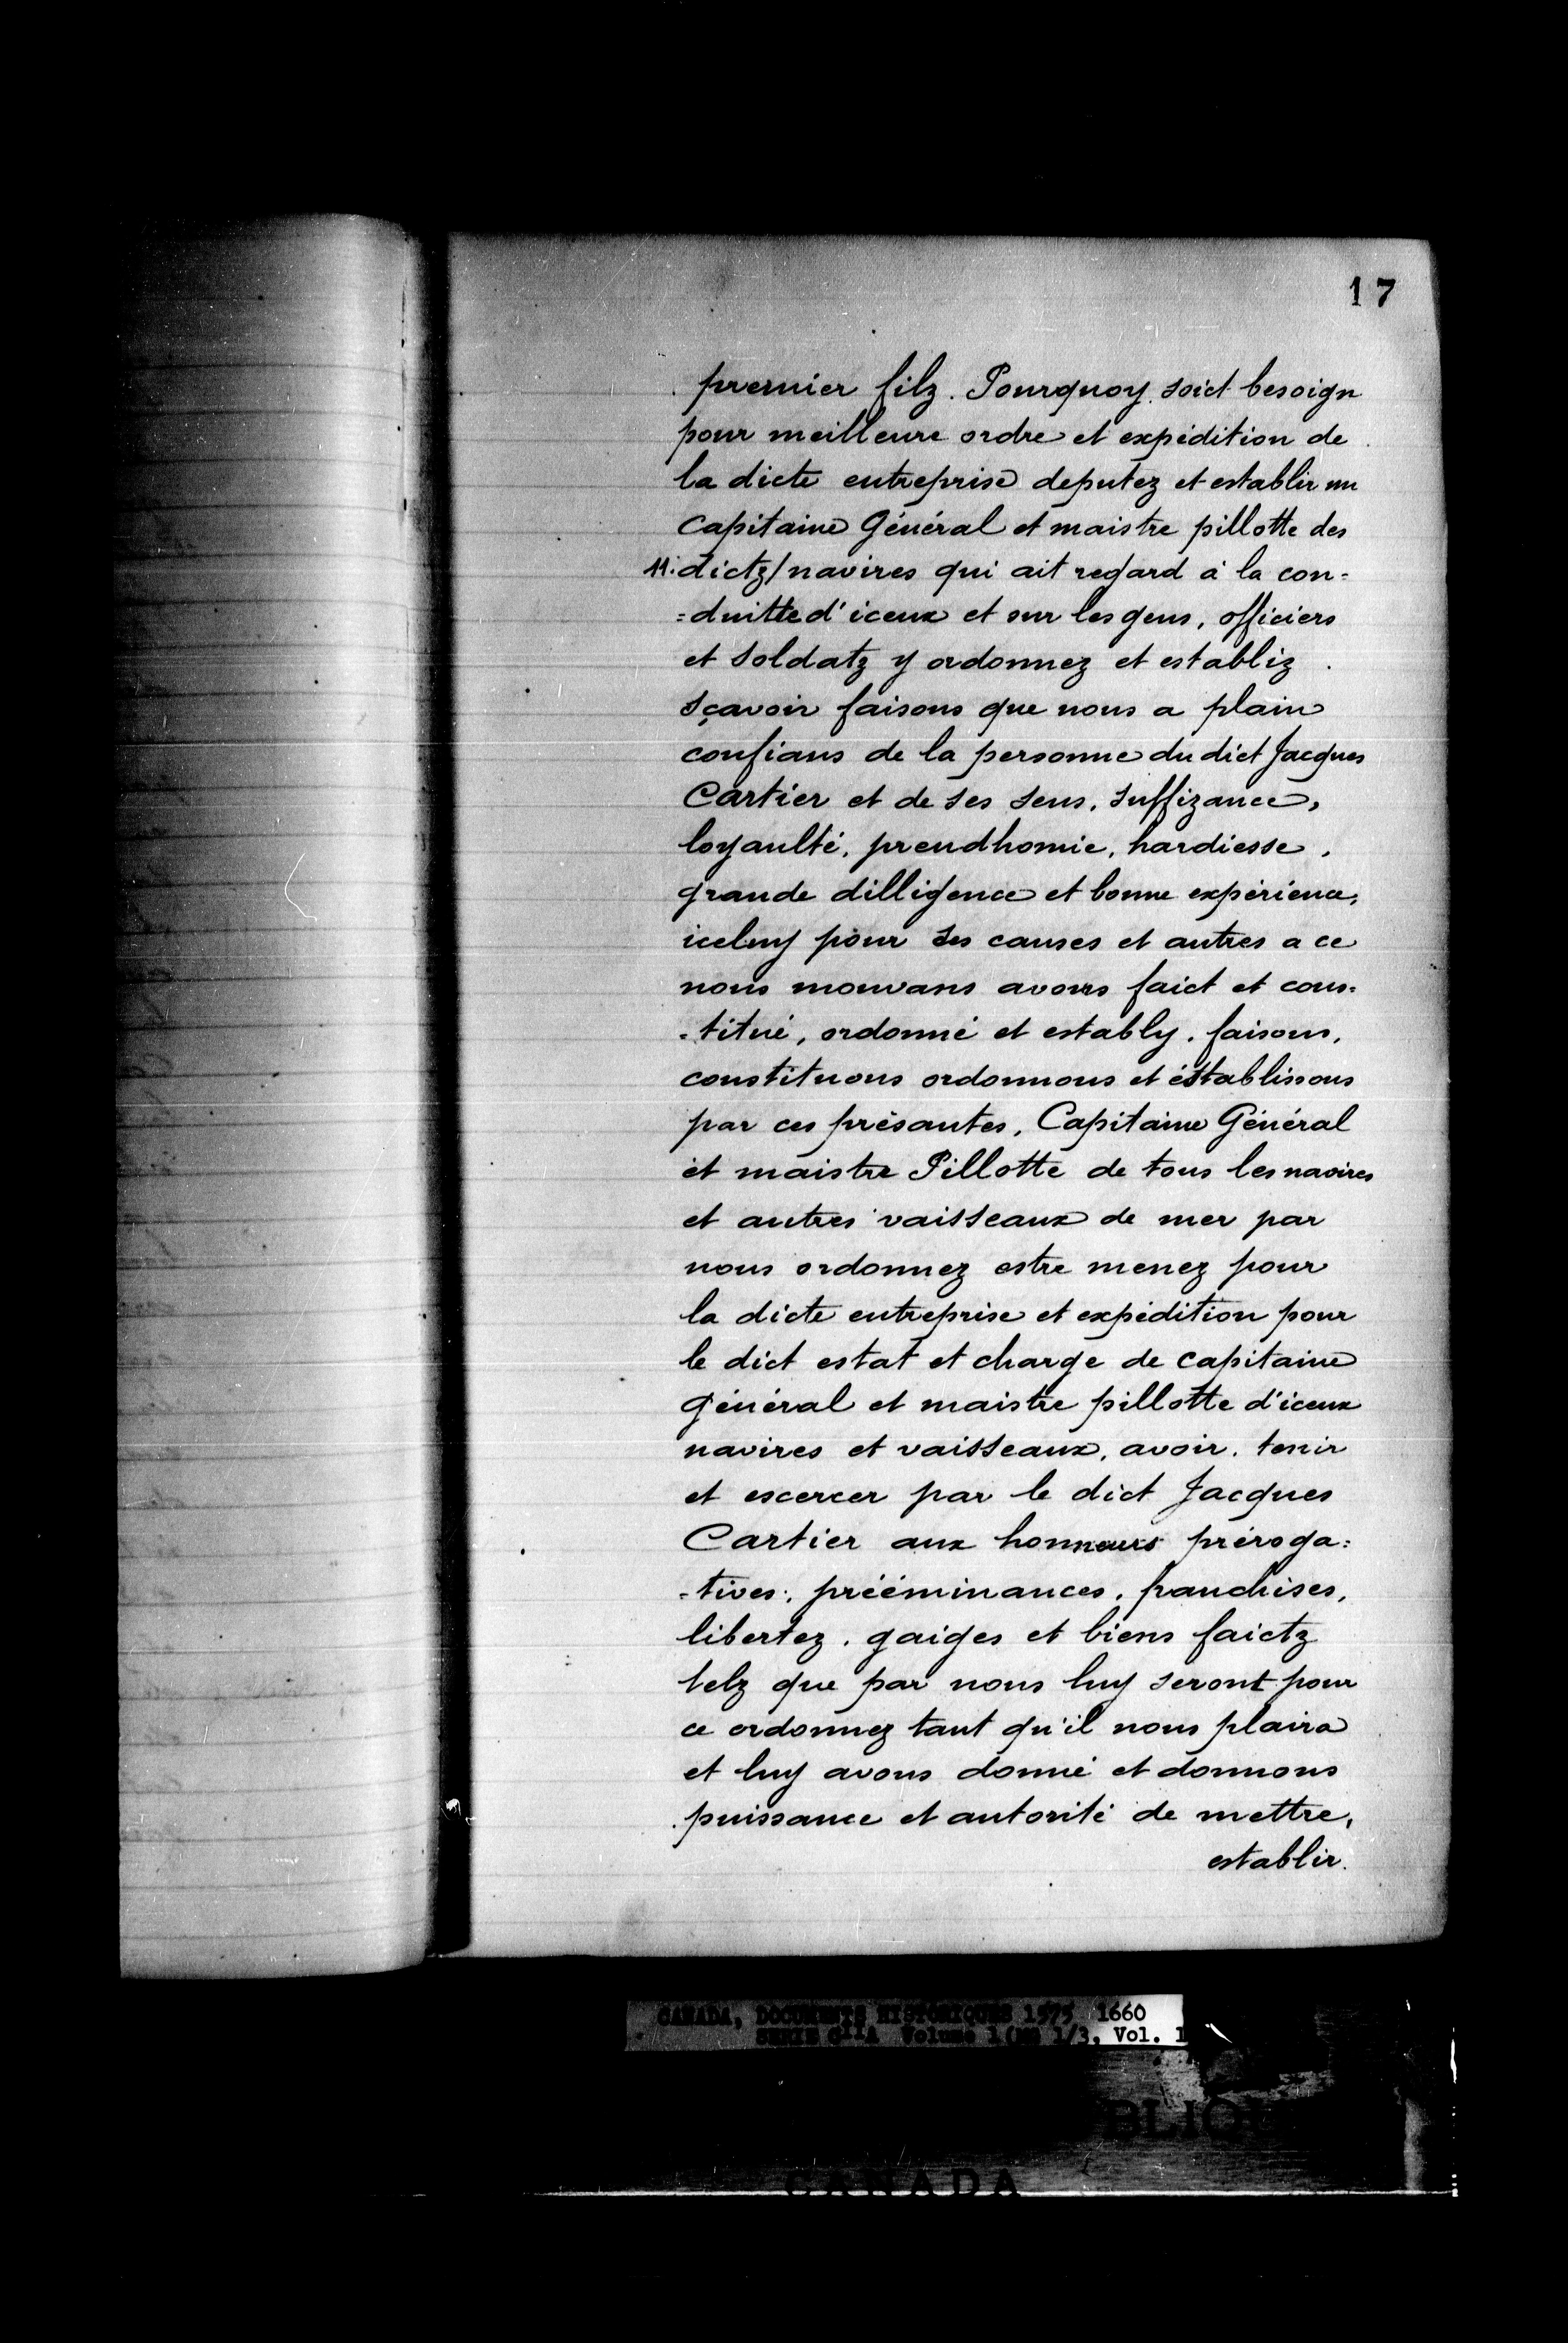 17
premier filz. Pourquoy soict besoign
pour meilleure ordre et expédition de
la dicte entreprise deputez et establir un
Capitaine Général et maistre pillotte des
11. dictz/navires qui ait regard à la con=
=duitte d'iceux et sur les gens, officiers
et soldatz y ordonnez et establiz.
sçavoir faisons que nous a plain
confians de la personne du dict Jacques
Cartier et de ses sens, suffizance,
loyaulté, preudhomie, hardiesse,
grande dilligence et bonne expérience,
iceluy pour ses causes et autres a ce
nous mouvans avons faict et cons=
=titué, ordonné et estably, faisons,
constituons ordonnons et éstablissons
par ces présantes, Capitaine Général
et maistre Pillotte de tous les navires
et autres vaisseaux de mer par
nous ordonnez estre menez pour
la dicte entreprise et expédition pour
le dict estat et charge de capitaine
général et maistre pillotte d'iceux
navires et vaisseaux, avoir, tenir
et escercer par le dict Jacques
Cartier aux honneurs préroga=
=tives, prééminances, franchises,
libertez, gaiges et biens faictz
telz que par nous luy seront pour
ce ordonnez tant qu'il nous plaira
et luy avons donné et donnons
puissance et autorité de mettre,
establir.
CANADA, DOCUMENTS HISTORIQUES 1575 1660
SERIE C11A Volume 1 (MG 1/3, Vol. 1
BLIQ
CANADA